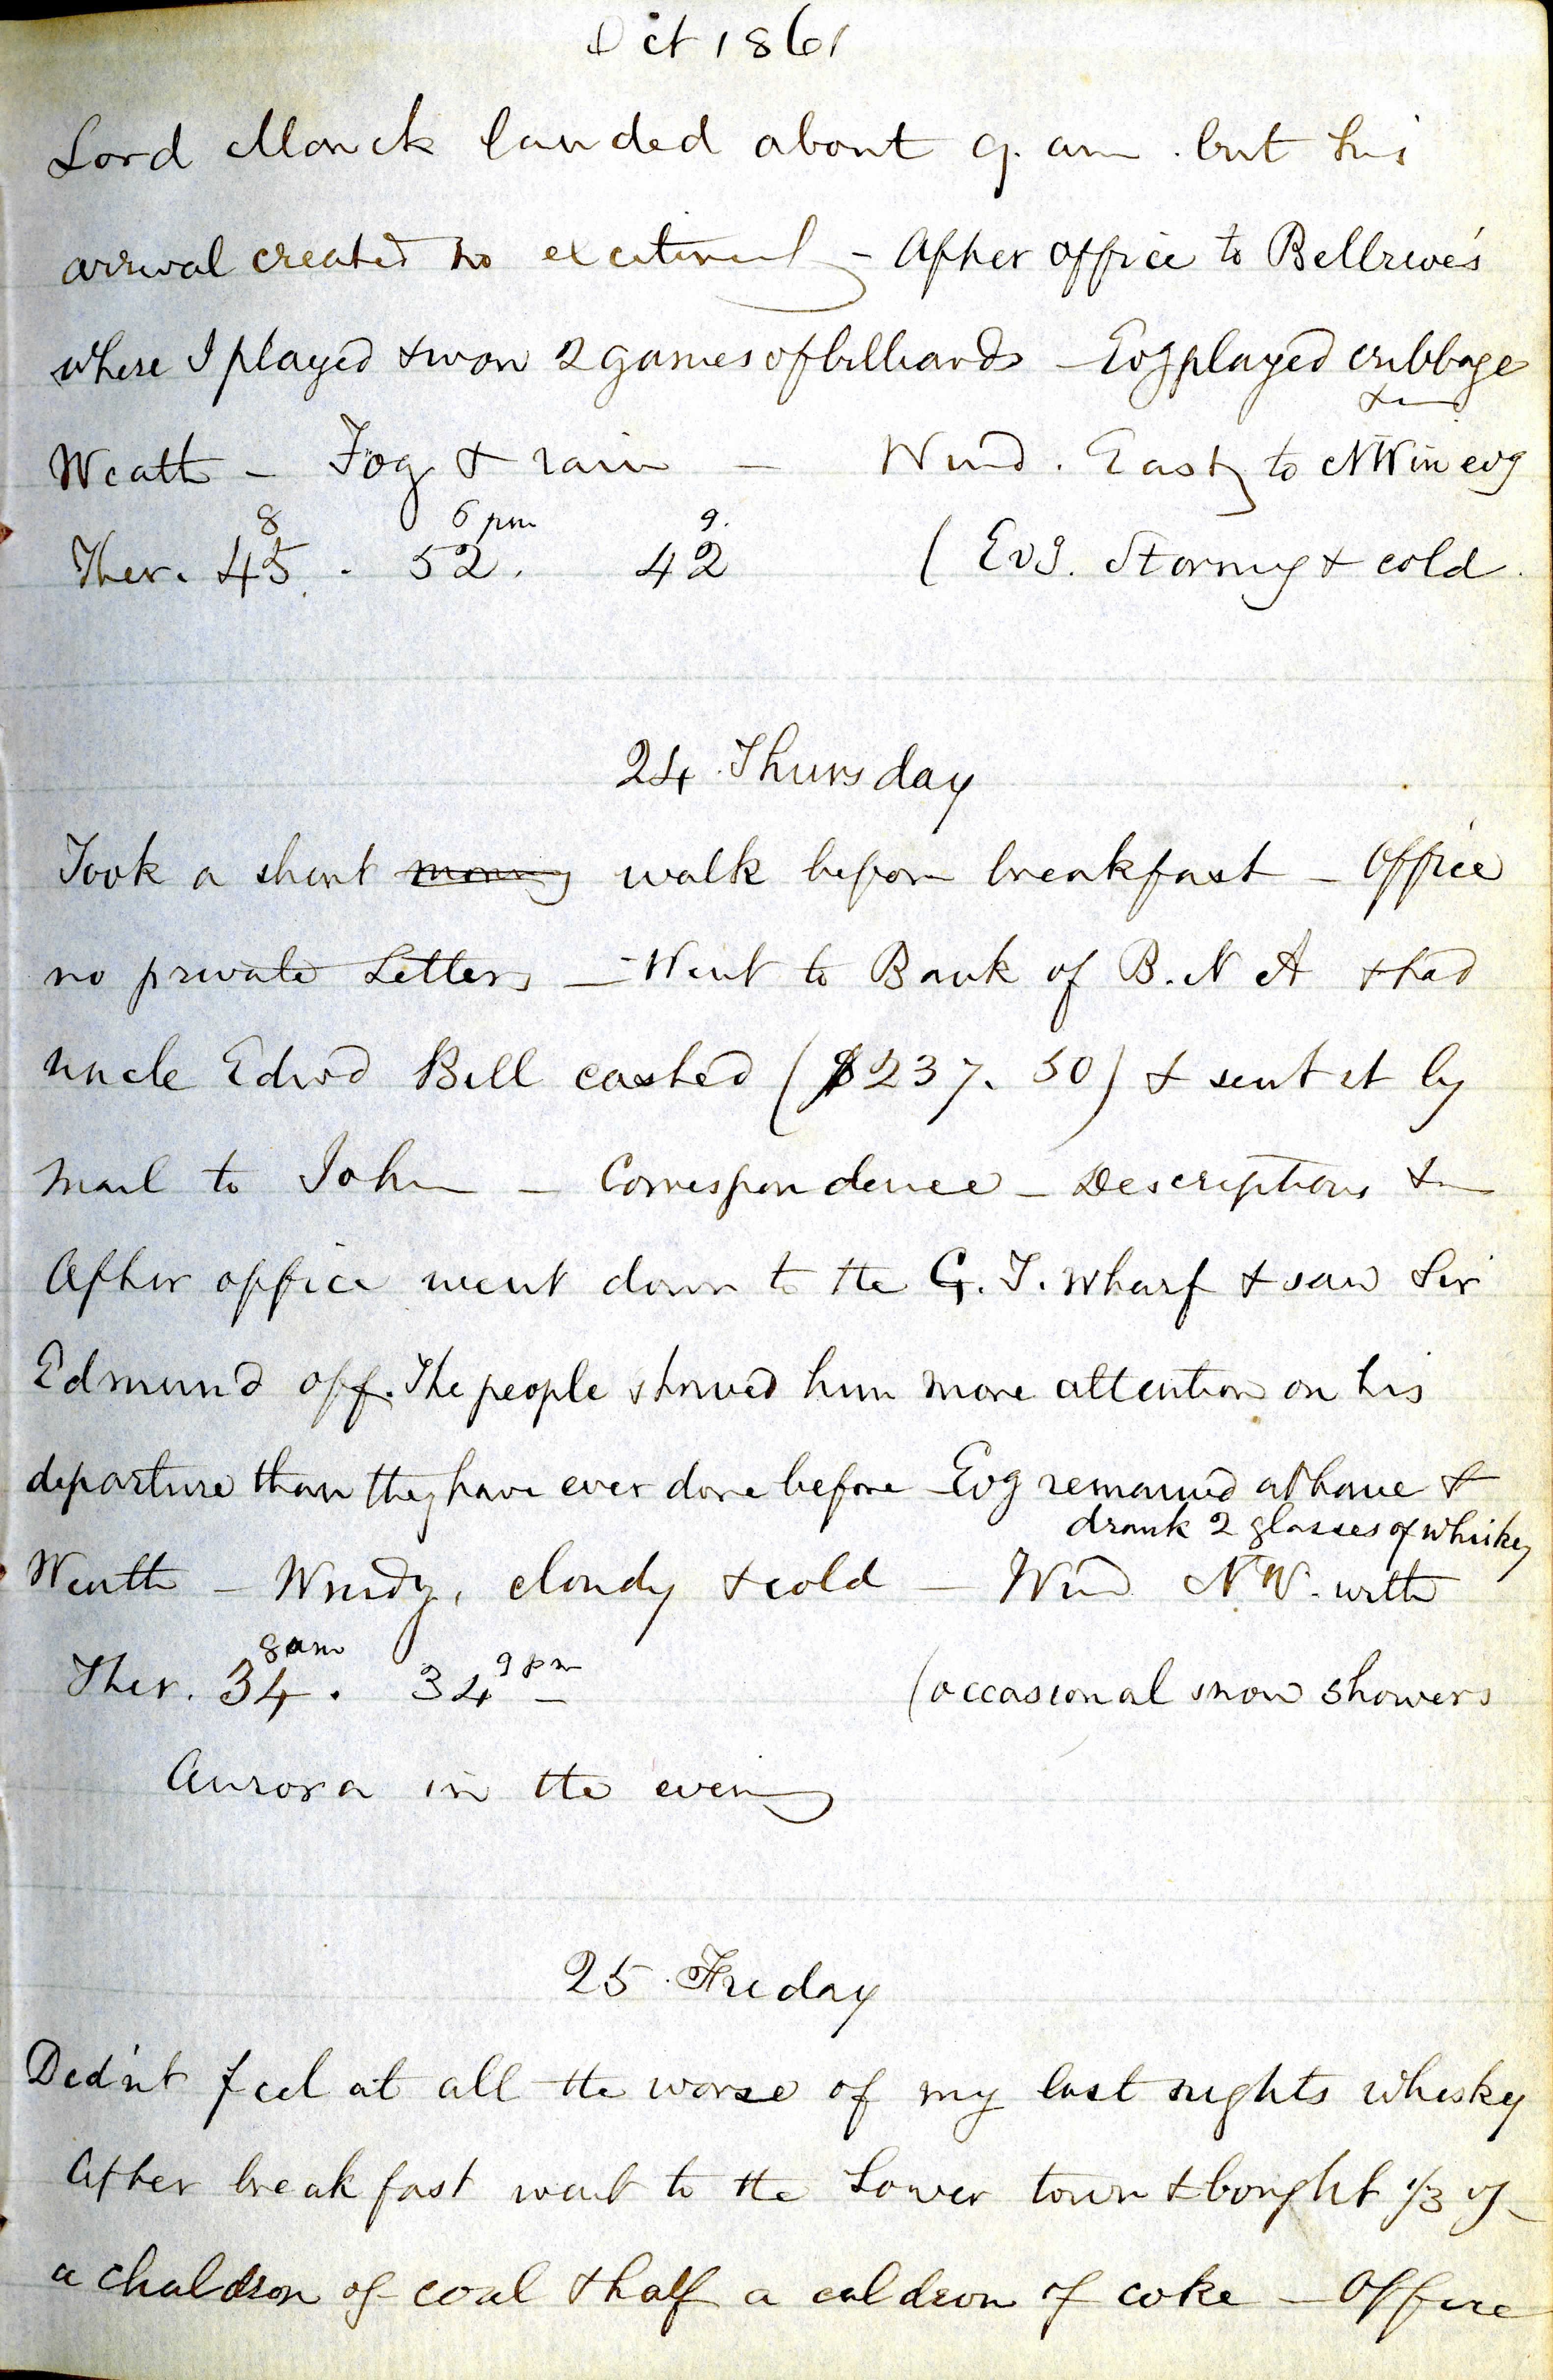 Oct 1861
Lord Monck landed about 9. am. but his
arrival created no excitement - After office to Bellrive's
where I played & won 2 games of billiards - Evg played cribbage
&c
Weath - Fog & rain - Wind. Easty to NW in evg
8 6 pm 9.
Ther. 45. 52. 42 (Evg. Stormy & cold.
24 Thursday
Took a short morning walk before breakfast - Office
no private Letters - Went to Bank of B. N A & had
uncle Edwd Bill cashed ($237. 50) & sent it by
mail to John - Correspondence - Descriptions &c
After office went down to the G. T. Wharf & saw Sir
Edmund off. The people showed him more attention on his
departure than they have ever done before - Evg remained at home &
drank 2 glasses of whiskey
Weath - Windy, cloudy & cold - Wind N.W. with
8am 9pm
Ther. 34. 34 - (occasional snow showers
Aurora in the evening
25 Friday
Did'nt feel at all the worse of my last nights whisky
After breakfast went to the Lower town & bought 1/3 of
a chaldron of coal & half a caldron of coke - Office